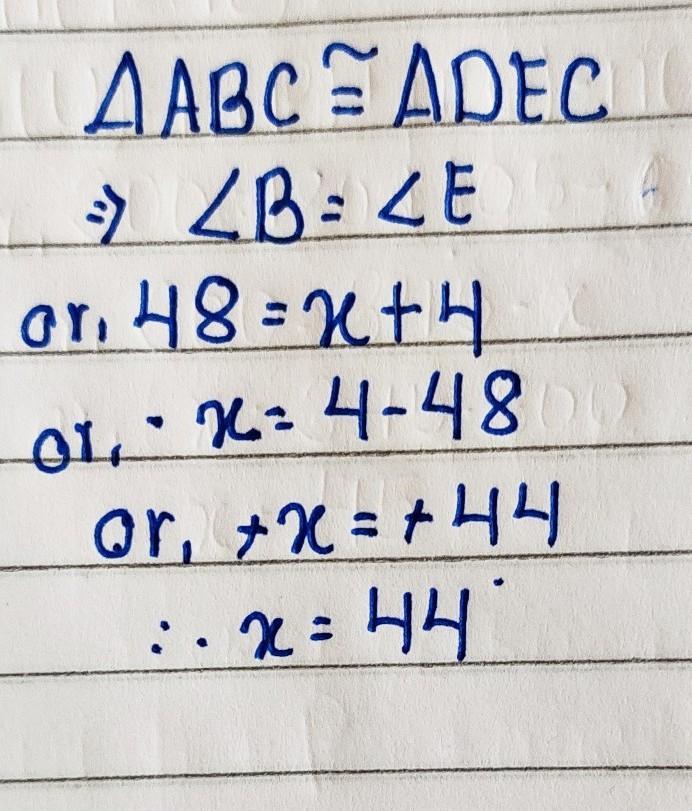 ΔABC ≅ ΔDEC
⇒ ∠B = ∠E
or, 48 = x + 4
or, - x = 4 - 48
or, +x = +44
∴ x = 44